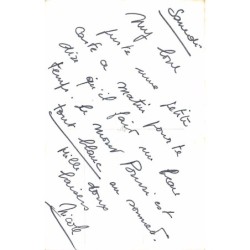 Samedi
My love
juste une petite
carte ce matin pour te
dire qu'il fait un beau
temps. le mont Pourri est
tout blanc au sommet.
Mille baisers doux
Nicole